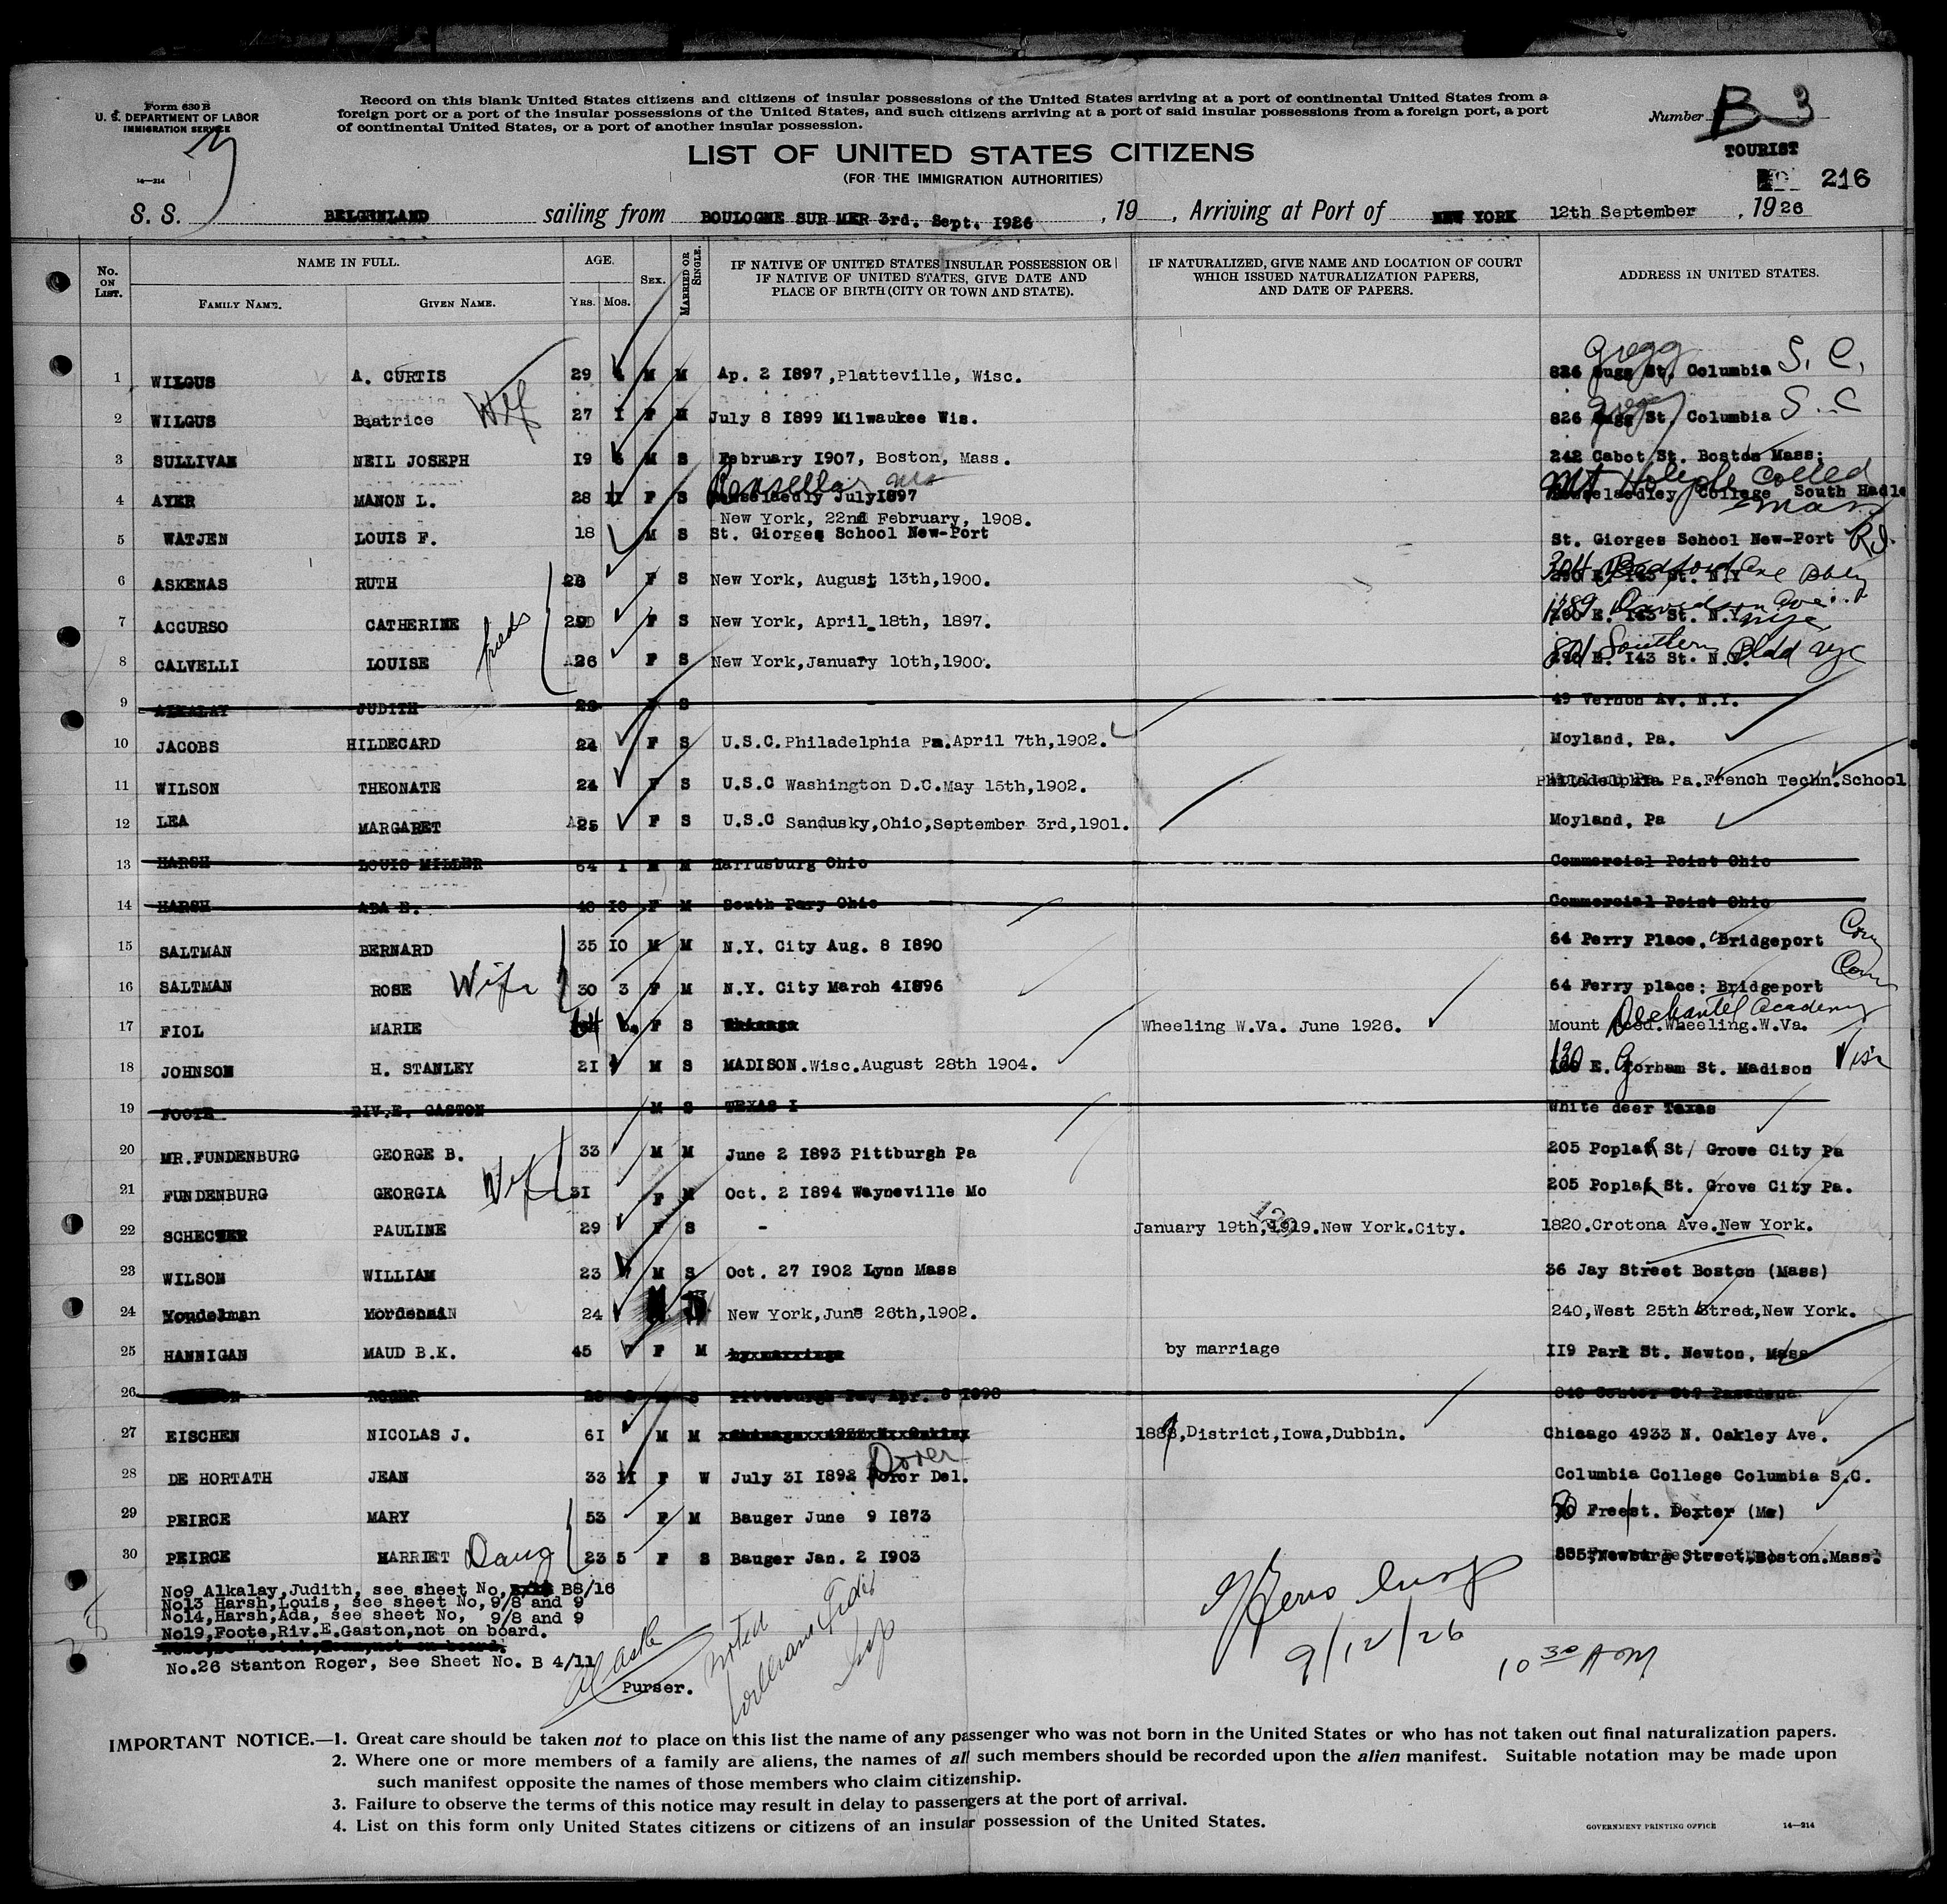 Form 630 B
U. S. DEPARTMENT OF LABOR
IMMIGRATION SERVICE
14—214
Record on this blank United States citizens and citizens of insular possessions of the United States arriving at a port of continental United States from a
foreign port or a port of the insular possessions of the United States, and such citizens arriving at a port of said insular possessions from a foreign port, a port
of continental United States, or a port of another insular possession.
Number B 3
LIST OF UNITED STATES CITIZENS
(FOR THE IMMIGRATION AUTHORITIES)
TOURIST
216
S. S. BELGENLAND sailing from BOULOGNE SUR MER 3rd. Sept. 1926 , 19 , Arriving at Port of NEW YORK 12th September , 1926
No. ON LIST. NAME IN FULL. FAMILY NAME. GIVEN NAME. AGE. YRS. MOS. SEX. MARRIED OR SINGLE.
IF NATIVE OF UNITED STATES INSULAR POSSESSION OR IF NATIVE OF UNITED STATES, GIVE DATE AND PLACE OF BIRTH (CITY OR TOWN AND STATE).
IF NATURALIZED, GIVE NAME AND LOCATION OF COURT WHICH ISSUED NATURALIZATION PAPERS, AND DATE OF PAPERS.
ADDRESS IN UNITED STATES.
1 WILGUS A. CURTIS 29 M M Ap. 2 1897, Platteville, Wisc. 826 Gregg St. Columbia S. C.
2 WILGUS Beatrice Wif 27 1 F M July 8 1899 Milwaukee Wis. 826 Gregg St. Columbia S. C
3 SULLIVAN NEIL JOSEPH 19 M S February 1907, Boston, Mass. 242 Cabot St. Boston Mass:
4 AYER MANON L. 28 11 F S July 1897 Mt Holyoke College South Hadle Mass
5 WATJEN LOUIS F. 18 M S New York, 22nd February, 1908. St. Giorges School New-Port St. Giorges School New-Port R.I.
6 ASKENAS RUTH 26 F S New York, August 13th,1900. 304 Bedford Ave
7 ACCURSO CATHERINE 29 F S New York, April 18th, 1897. 1789 Davidson Ave. nyc
8 CALVELLI LOUISE 26 F S New York, January 10th,1900. 801 Southern Bldd nyc
9 ALKALAY JUDITH F S 49 Vernon Av. N.Y.
10 JACOBS HILDECARD 24 F S U.S.C. Philadelphia Pa. April 7th,1902. Moyland, Pa.
11 WILSON THEONATE 24 F S U.S.C Washington D.C. May 15th,1902. Philadelphia Pa. French Techn. School
12 LEA MARGARET 25 F S U.S.C Sandusky, Ohio, September 3rd,1901. Moyland, Pa
13 HARSH LOUIS MILLER 54 1 M M Harrusburg Ohio Commercial Point Ohio
14 HARSH ADA E. 48 10 F M South Pary Ohio Commercial Point Ohio
15 SALTMAN BERNARD 35 10 M M N.Y. City Aug. 8 1890 64 Perry Place, Bridgeport Conn
16 SALTMAN ROSE Wife 30 3 F M N.Y. City March 41896 64 Ferry place: Bridgeport Conn
17 FIOL MARIE F S Wheeling W.Va. June 1926. Mount Dechantel Academy Wheeling. W.Va.
18 JOHNSON H. STANLEY 21 M S MADISON. Wisc. August 28th 1904. 130 E. Gorham St. Madison Wisn
19 FOOTE RIV.E. GASTON M S TEXAS I White deer Texas
20 MR. FUNDENBURG GEORGE B. 33 M M June 2 1893 Pittburgh Pa 205 Poplar St/ Grove City Pa
21 FUNDENBURG GEORGIA Wife 31 F M Oct. 2 1894 Wayneville Mo 205 Poplar St. Grove City Pa.
22 SCHECTER PAULINE 29 F S - January 19th,1919. New York. City. 1820. Crotona Ave. New York.
23 WILSON WILLIAM 23 M S Oct. 27 1902 Lynn Mass 36 Jay Street Boston (Mass)
24 Youdelman 24 New York, June 26th,1902. 240, West 25th Street, New York.
25 HANNIGAN MAUD B.K. 45 7 F M by marriage 119 Park St. Newton, Mass
26 ROGER S Pittsburgh Pa, Apr. 8 1898 Pasadena
27 EISCHEN NICOLAS J. 61 M M District, Iowa, Dubbin. Chicago 4933 N. Oakley Ave.
28 DE HORTATH JEAN 33 11 F W July 31 1892 Dover Del. Columbia College Columbia S.C.
29 PEIRCE MARY 53 F M Bauger June 9 1873 50 Free st. Dexter (Me)
30 PEIRCE HARRIET Daug 23 5 F S Bauger Jan. 2 1903 Boston. Mass.
No9 Alkalay, Judith, see sheet No, B8/16
No13 Harsh, Louis, see sheet No, 9/8 and 9
No14, Harsh, Ada, see sheet No, 9/8 and 9
No19, Foote, Riv.E. Gaston, not on board.
No.26 Stanton Roger, See Sheet No. B 4/11
Purser.
9/12/26
10 30 AM
IMPORTANT NOTICE.—1. Great care should be taken not to place on this list the name of any passenger who was not born in the United States or who has not taken out final naturalization papers.
2. Where one or more members of a family are aliens, the names of all such members should be recorded upon the alien manifest. Suitable notation may be made upon
such manifest opposite the names of those members who claim citizenship.
3. Failure to observe the terms of this notice may result in delay to passengers at the port of arrival.
4. List on this form only United States citizens or citizens of an insular possession of the United States.
GOVERNMENT PRINTING OFFICE 14—214